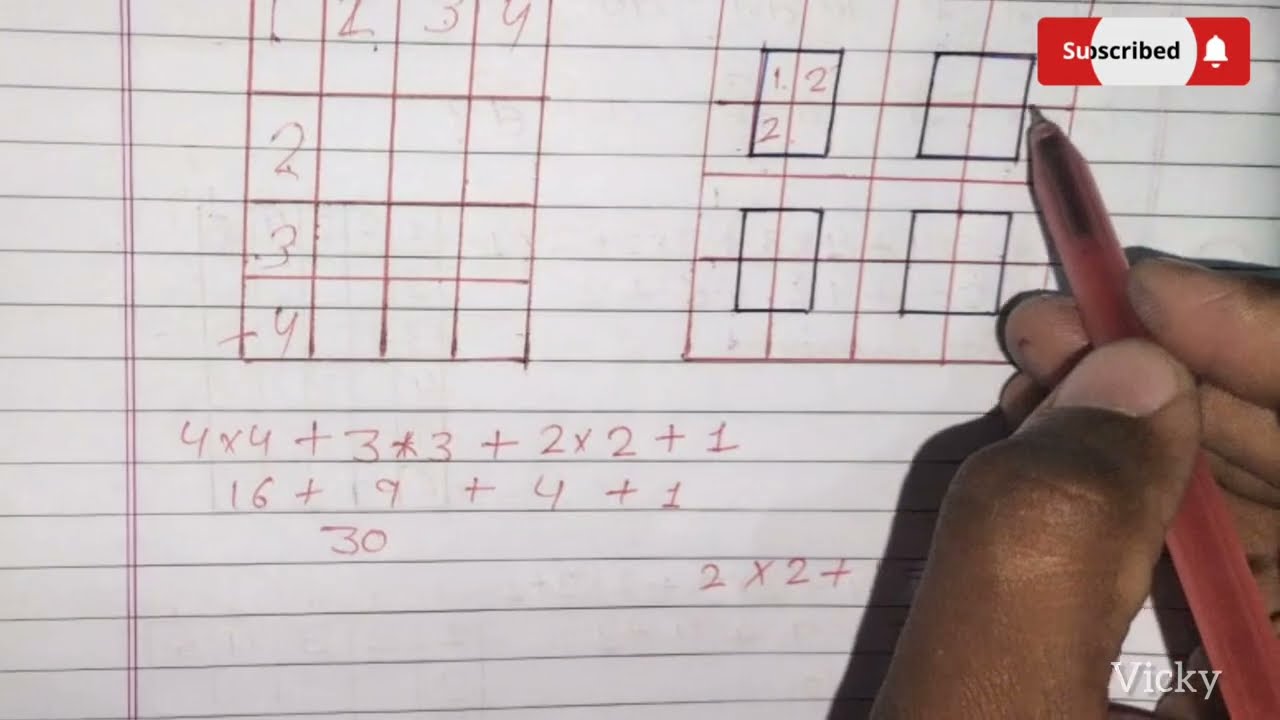 1 2 3 4
Subscribed
1. 2
2
2
3
4
4x4 + 3*3 + 2x2 + 1
16 + 9 + 4 + 1
30
2 x 2 +
Vicky